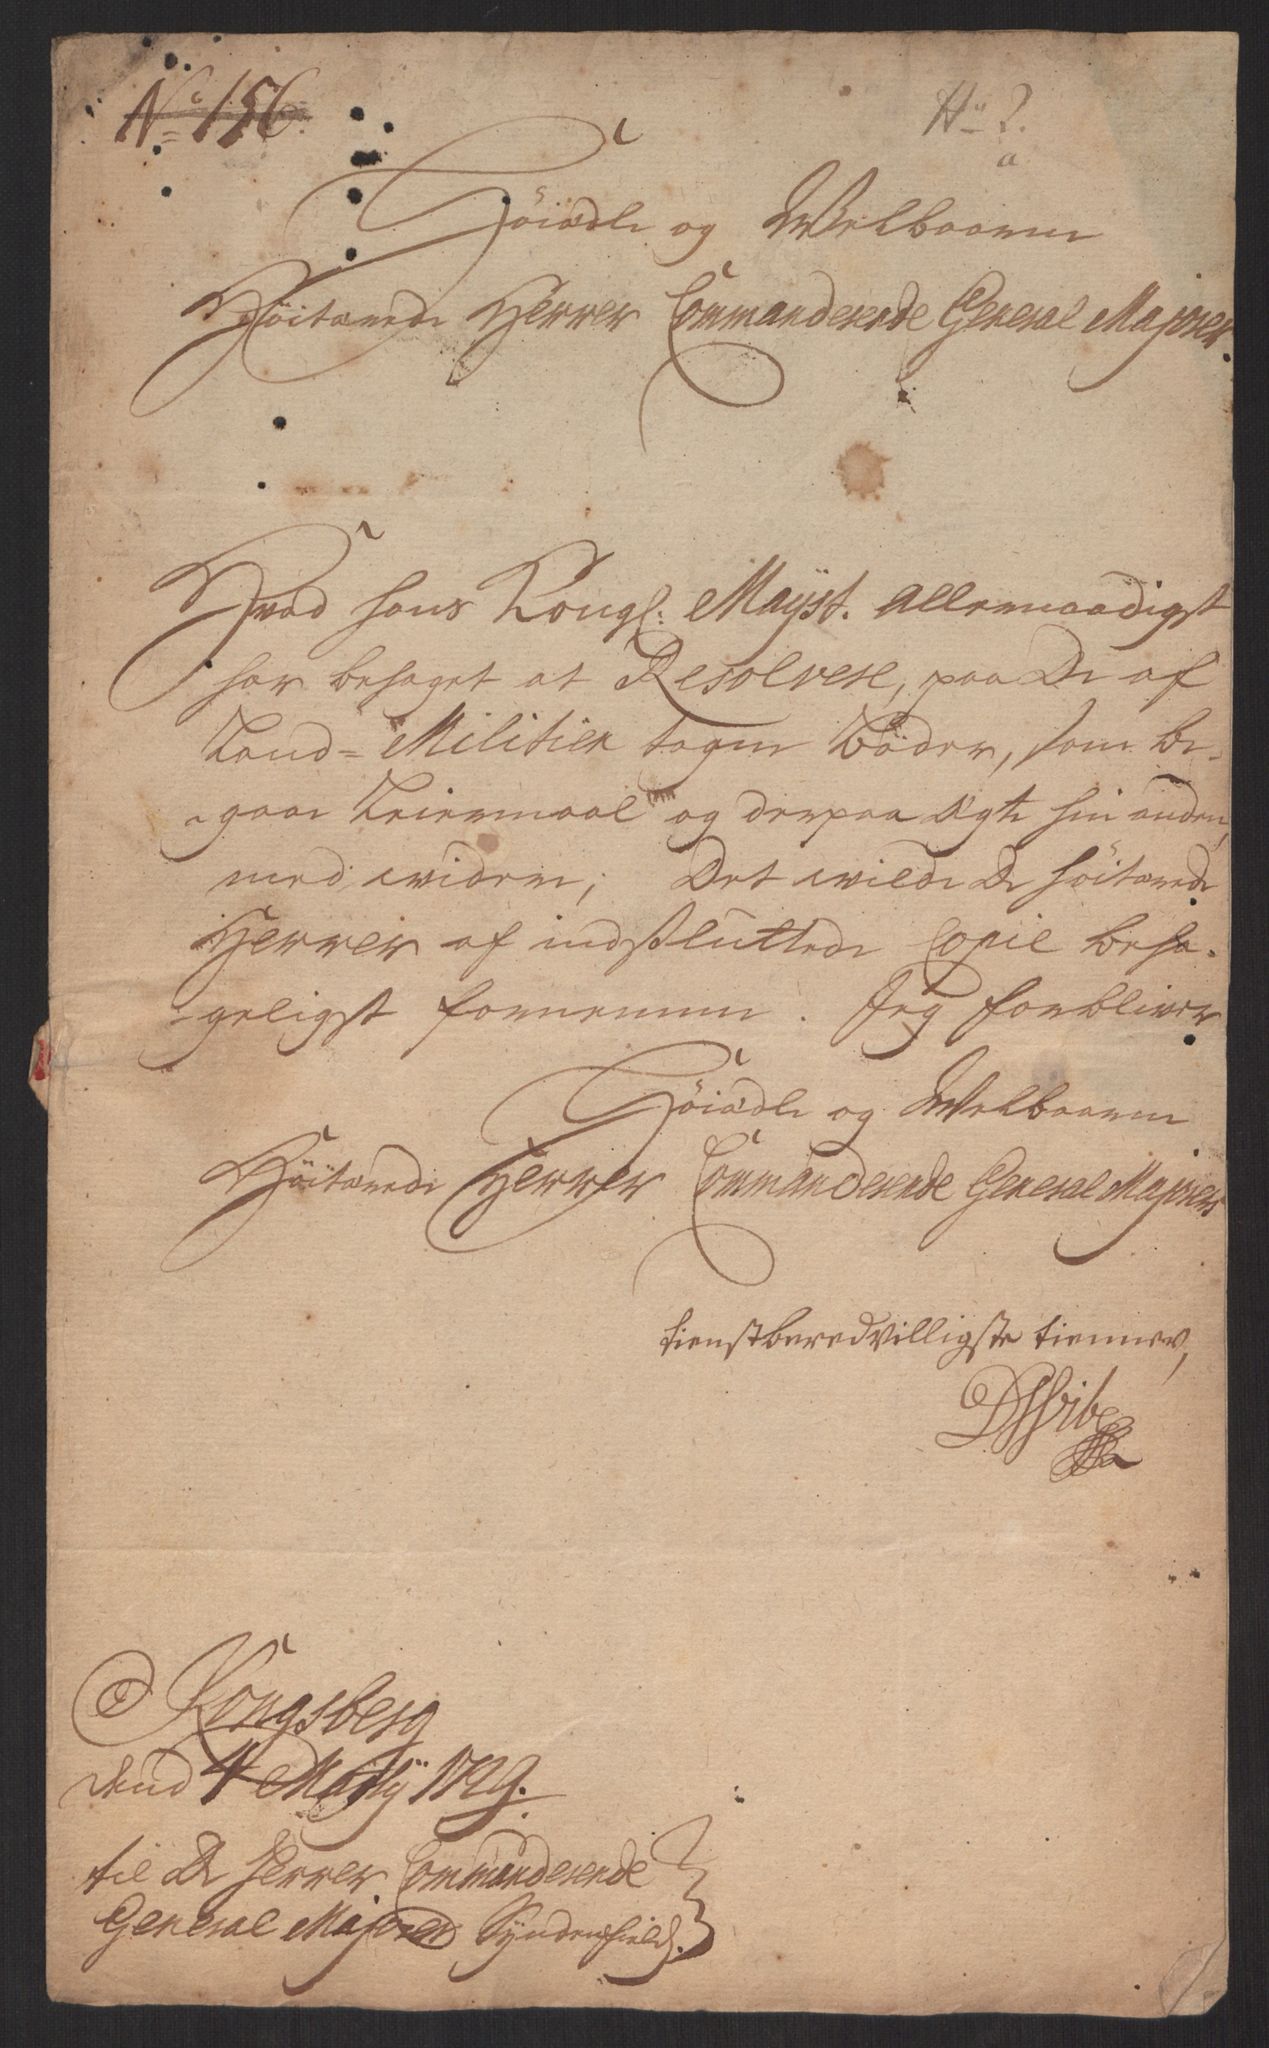 No 156.
Höiædle og Welbaarne
Höitærede Herrer Commanderende General Majorer.
Hvad hans Kongl: Mayst. allernaadigst
har behaget at Resolvere, paa De af
Land=Militien tagne Böder, som be-
-gaar Leiermaal og derpaa Ægte hin anden,
med widere; Det wilde De höitærede
Herrer af indsluttede Copie beha-
-geligst fornemme. Jeg forbliver
Höiædle og Welbaarne
Höitærede Herrer Commanderende General Majorers
tienstberedvilligste tienner,
DWibe
Kongsberg
dend 4 Martij 1729.
til De Herrer Commanderende
General Majorer Syndenfields.